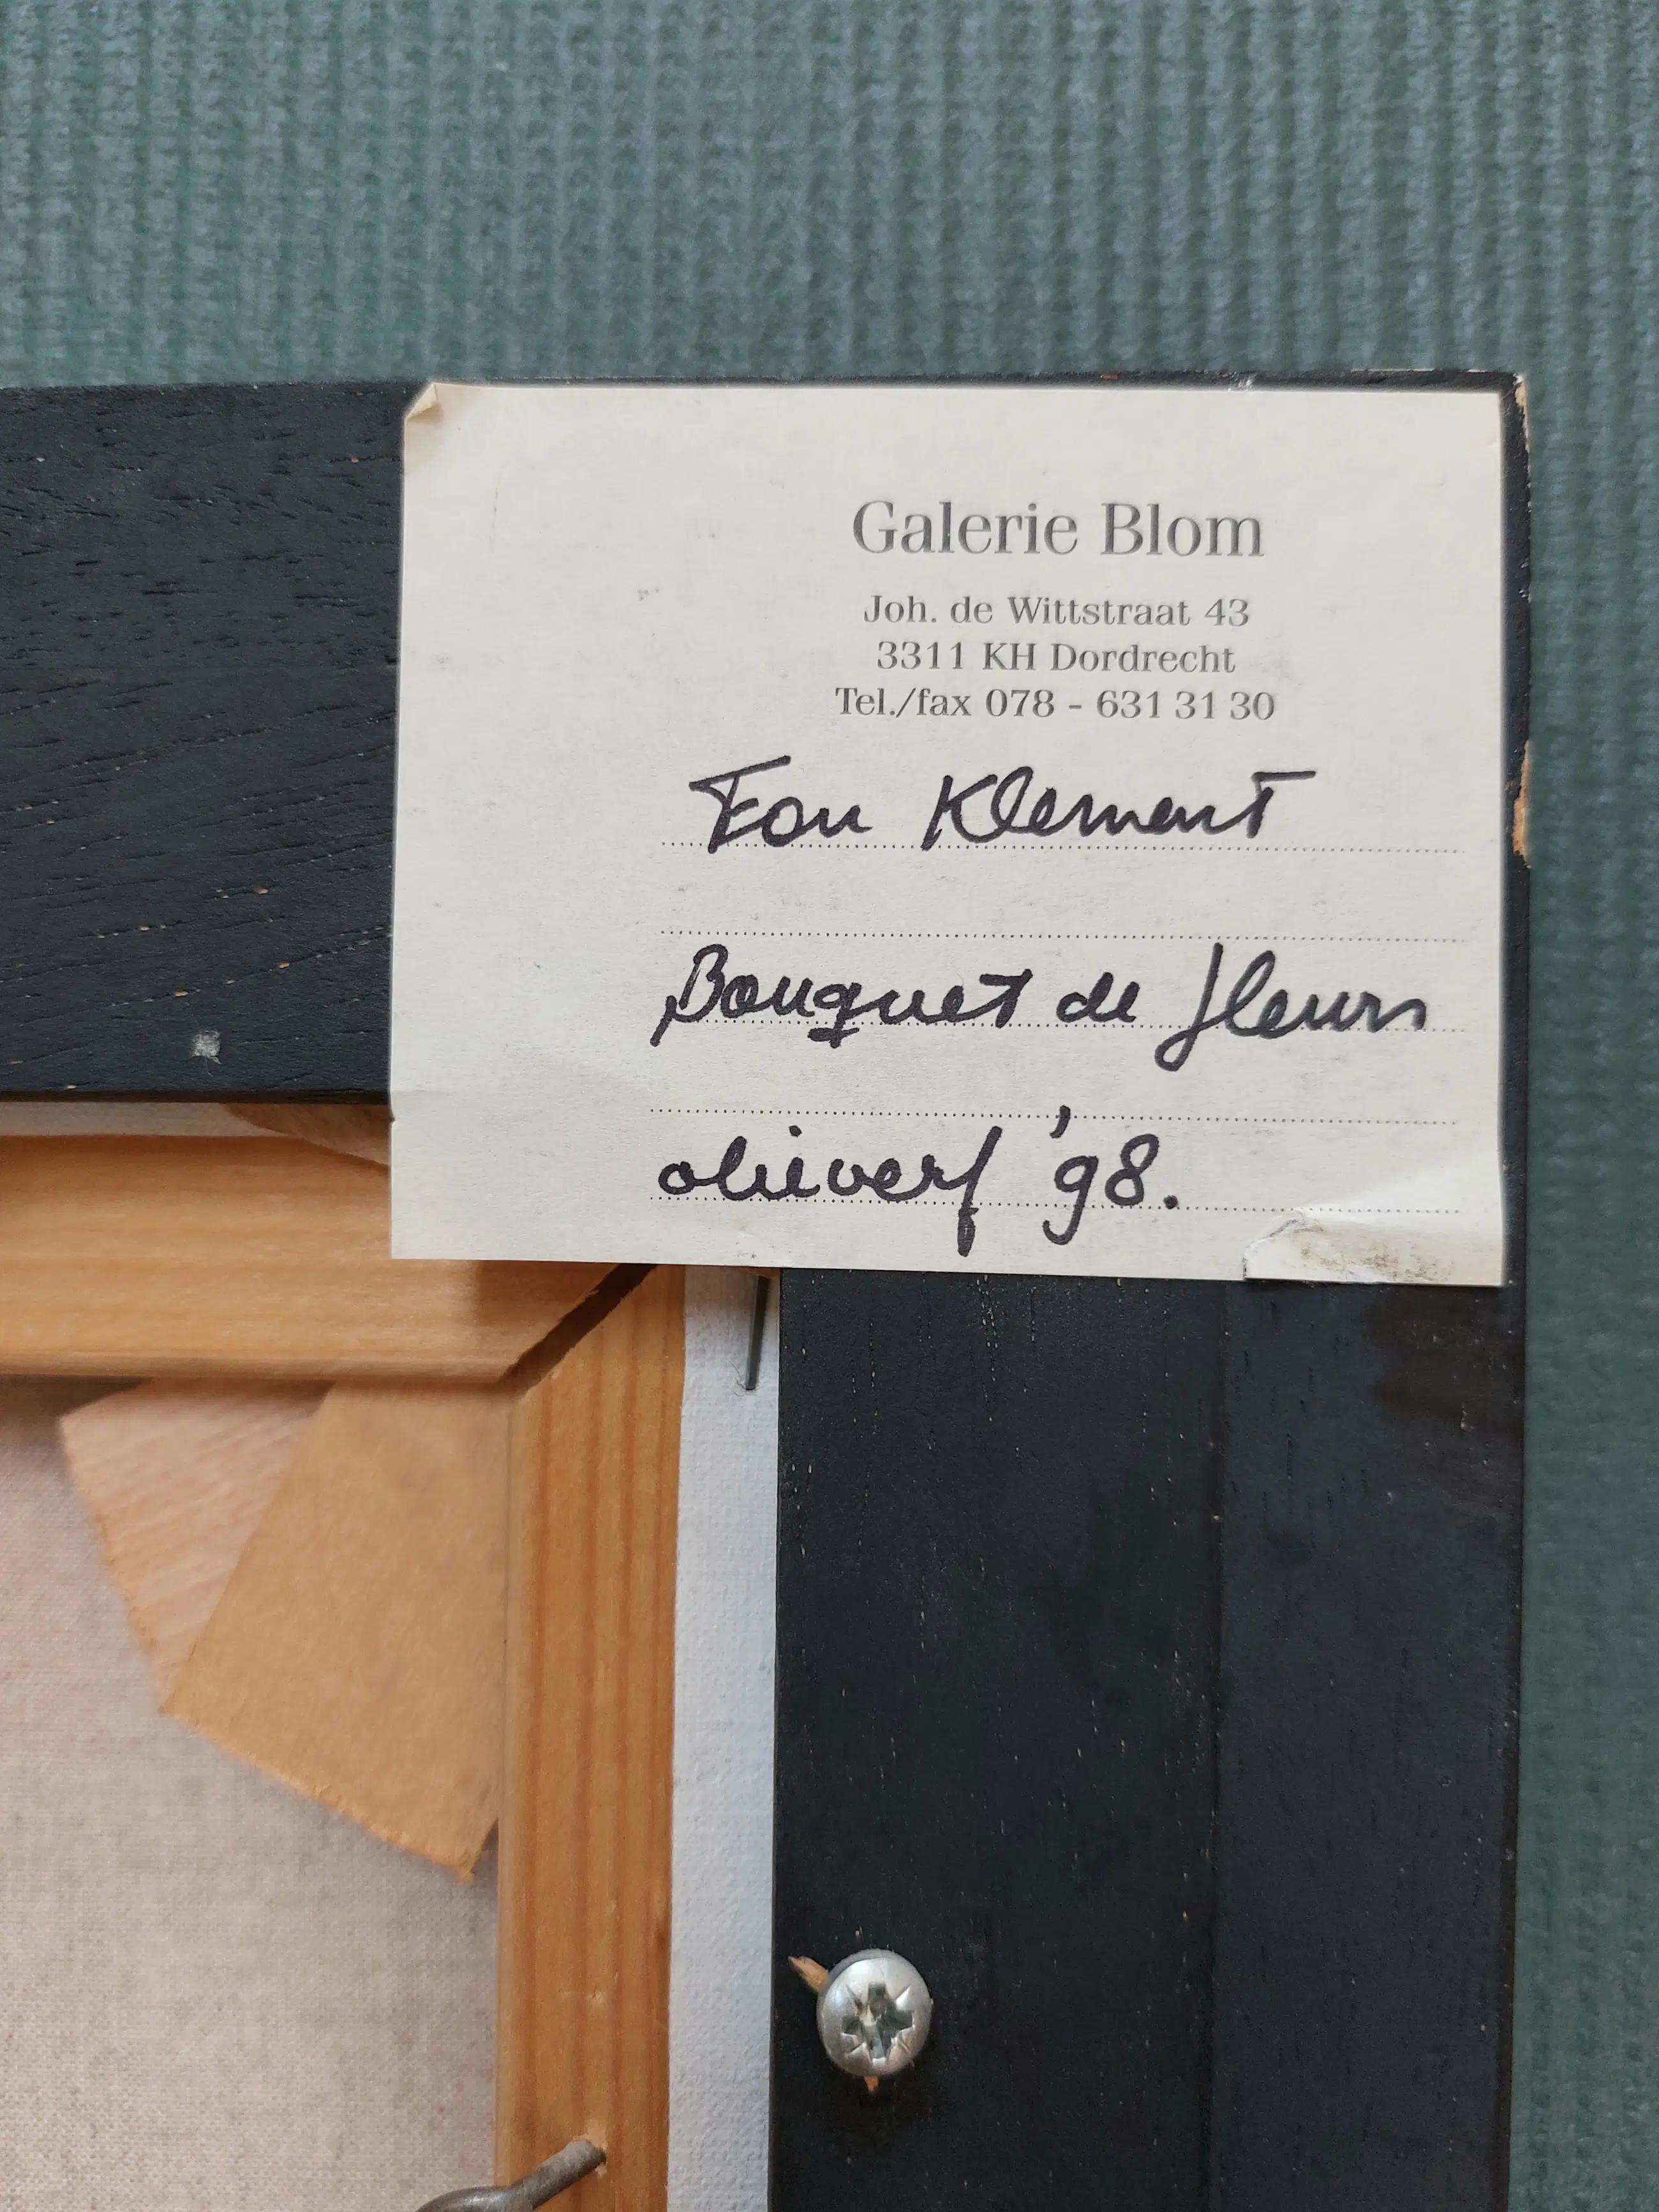 Galerie Blom
Joh. de Wittstraat 43
3311 KH Dordrecht
Tel./fax 078 - 631 31 30
Fon Klement
Bouquet de fleurs
olieverf '98.